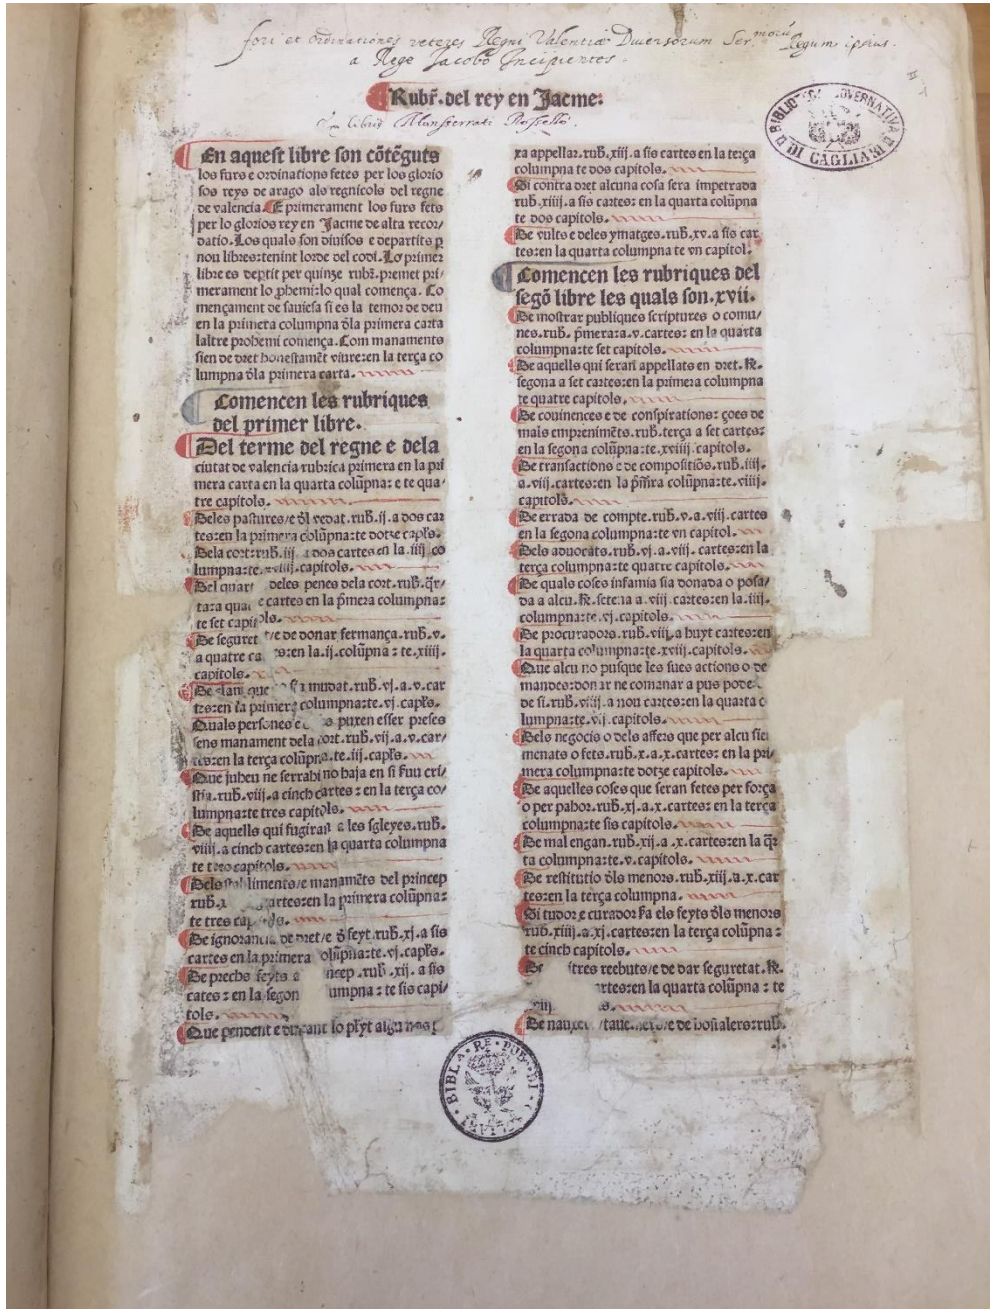 fori et ordinationes veteres Regni Valentiæ Diversorum Ser.morũ Regum ipsius.
a Rege Jacobo Incipientes.
Rubr̃.del rey en Jacme:
Ex libris Monserrati Rosselló.
BIBLIOTECA GOVERNATIVA
DI CAGLIARI
En aquest libre son cõtẽguts
los furs e ordinations fetes per los glorio
sos reys de arago als regnicols del regne
de valencia. E primerament los furs fets
per lo glorios rey en Jacme de alta recor/
datio. Los quals son diuisos e departits p
nou libres: tenint lorde del codi. Lo primer
libre es deptit per quinze rubr̃. premet pri/
merament lo phemi: lo qual comença. Co
mençament de sauiesa si es la temor de deu
en la primera columpna d̃la primera carta
laltre prohemi comença. Com manaments
sien de dret honestamẽt viure: en la terça co
lumpna d̃la primera carta.
Comencen les rubriques
del primer libre.
Del terme del regne e dela
ciutat de valencia rubrica primera en la pri
mera carta en la quarta colũpna: e te qua/
tre capitols.
Deles pastures/e d̃l vedat.rub̃.ij.a dos car
tes: en la primera colũpna: te dotze capl̃s.
Dela cort: rub̃.iij a dos cartes en la .iiij co
lumpna: te. capitols.
Del quart deles penes dela cort.rub̃.q̃r/
ta: a e cartes en la p̃mera columpna:
te set capitols.
De seguret /e de donar fermança.rub̃.v.
a quatre ca en la.ij.colũpna : te.xiiij.
capitols.
De que mudat.rub̃.vj.a.v.car
tes: en la primera columpna: te.vj.capl̃s.
Quals persones e puxen esser preses
sens manament dela cort.rub̃.vij.a.v.car/
tes: en la terça colũpna.te.iij.capl̃s.
Que juheu ne serrahi no haja en si seruu cri/
stia.rub̃.viij.a cinch cartes : en la terça co/
lumpna: te tres capitols.
De aquells qui fugiran a les sgleyes.rub̃.
viiij.a cinch cartes: en la quarta columpna
te capitols.
Dels stabliments/e manamẽts del princep
rub̃.x cartes: en la primera colũpna:
te tres capitols.
De ignorancia de dret/e d̃ feyt.rub̃.xj.a sis
cartes en la primera colũpna: te.vj.capl̃s.
De prechs feyts a princep .rub̃.xij.a sis
cates : en la segon umpna : te sis capi/
tols.
Que pendent e durant lo plyt algu nos p
xa appellar.rub̃.xiij.a sis cartes en la terça
columpna te dos capitols.
Si contra dret alcuna cosa sera impetrada
rub̃.xiiij.a sis cartes: en la quarta colũpna
te dos capitols.
De vults e deles ymatges.rub̃.xv.a sis car
tes: en la quarta columpna te vn capitol.
Comencen les rubriques del
segõ libre les quals son.xvij.
De mostrar publiques scriptures o comu/
nes.rub̃. p̃mera: a.v.cartes: en la quarta
columpna: te set capitols.
De aquells qui seran appellats en dret.R̃.
segona a set cartes: en la primera columpna
te quatre capitols.
De couinences e de conspirations: çoes de
mals emprenimẽts.rub̃.terça a set cartes:
en la segona colũpna: te.xviiij.capitols.
De transactions e de compositiõs.rub̃.iiij.
a.viij.cartes: en la p̃m̃ra colũpna: te.viij.
capitols.
De errada de compte.rub̃.v.a.viij.cartes
en la segona columpna: te vn capitol.
Dels aduocats.rub̃.vj.a.viij.cartes: en la
terça columpna: te quatre capitols.
De quals coses infamia sia donada o posa/
da a alcu.R̃.setena a.viij.cartes: en la.iiij.
columpna: te.vj.capitols.
De procuradors.rub̃.viij.a huyt cartes: en
la quarta columpna: te.xviij.capitols.
Que alcu no pusque les sues actions o de
mandes: donar ne comanar a pus pode
de si.rub̃.viiij.a nou cartes: en la quarta c
lumpna: te.vij.capitols.
Dels negocis o dels affers que per alcu sien
menats o fets.rub̃.x.a.x.cartes: en la pri/
mera columpna: te dotze capitols.
De aquelles coses que seran fetes per força
o per pahor.rub̃.xj.a.x.cartes: en la terça
columpna: te sis capitols.
De mal engan.rub̃.xij.a .x.cartes: en la q̃r
ta columpna: te.v.capitols.
De restitutio d̃ls menors.rub̃.xiij.a.x.car
tes: en la terça columpna.
Si tudor e curador fa els feyts d̃ls menors
rub̃.xiiij.a.xj.cartes: en la terça colũpna :
te cinch capitols.
De itres rebuts/e de dar seguretat.R̃.
rtes: en la quarta colũpna : te
s.
De nauxer /tauerners/e de hostalers: rub̃.
BIBL A · RE · PUB · DI · CAGLIARI